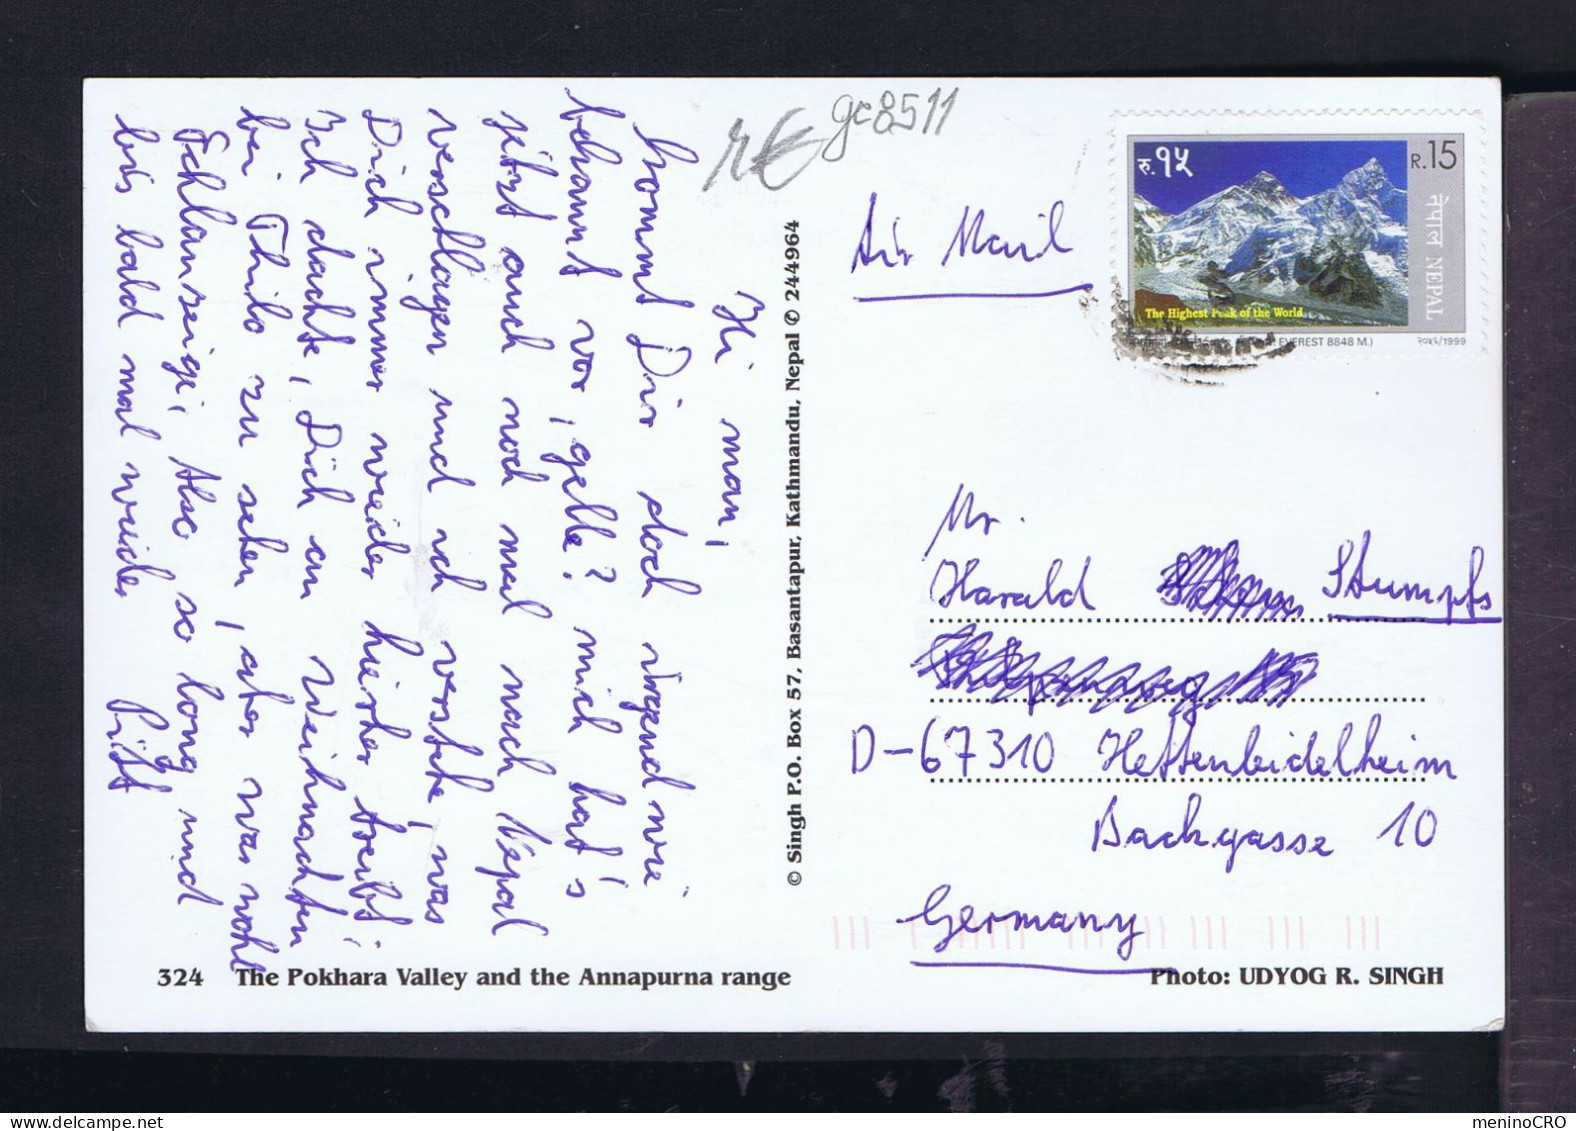 Hi man,
kommt Dir doch irgendwie
bekannt vor, gelle? mich hat's
jetzt auch noch mal nach Nepal
verschlagen und ich verstehe, was
Dich immer wieder hierher treibt.
Ich dachte, Dich an Weihnachten
bei Thilo zu sehen, aber war wohl
Fehlanzeige, Also so long und
bis bald mal wieder
© Singh P.O. Box 57, Basantapur, Kathmandu, Nepal © 244964
324 The Pokhara Valley and the Annapurna range
gc8511
Air Mail
रु.१५
R.15
नेपाल NEPAL
The Highest Peak of the World
EVEREST 8848 M.)
२०५६/1999
Mr.
Harald Stumpfs
D-67310 Hettenleidelheim
Bachgasse 10
Germany
Photo: UDYOG R. SINGH
meninoCRO